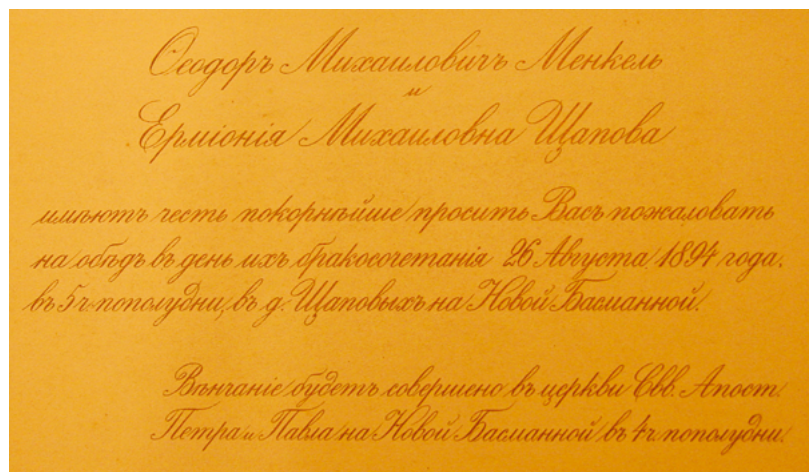 Ѳеодоръ Михаиловичъ Менкель
и
Ерміонія Михаиловна Щапова
имѣютъ честь покорнѣйше просить Васъ пожаловать
на обѣдъ въ день ихъ бракосочетанія 26 Августа 1894 года.
въ 5 ч. пополудни, въ д. Щаповыхъ на Новой Басманной.
Вѣнчаніе будетъ совершено въ церкви Свв. Апост.
Петра и Павла на Новой Басманной въ 4 ч. пополудни.